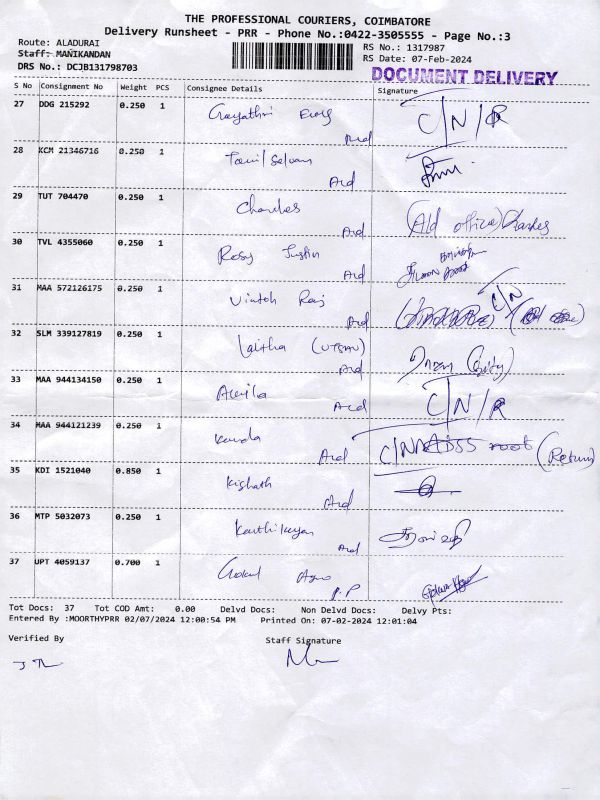 THE PROFESSIONAL COURIERS, COIMBATORE
Delivery Runsheet - PRR - Phone No.:0422-3505555 - Page No.:3
Route: ALADURAI
Staff: MANIKANDAN
DRS No.: DCJB131798703
RS No.: 1317987
RS Date: 07-Feb-2024
DOCUMENT DELIVERY
S No Consignment No Weight PCS Consignee Details Signature
27 DDG 215292 0.250 1 Gayathri C/N/R
28 KCM 21346716 0.250 1 Tamil Selvan
Ard
29 TUT 704470 0.250 1 Charles (Ald office) Charles
Ard
30 TVL 4355060 0.250 1 Rosy Justin
Ard
31 MAA 572126175 0.250 1 Raj C/N
Ard
32 SLM 339127819 0.250 1 Lalitha
Ard
33 MAA 944134150 0.250 1 Akila C/N/R
Ard
34 MAA 944121239 0.250 1 root (Return)
Ard
35 KDI 1521040 0.850 1
Ard
36 MTP 5032073 0.250 1 Karthikeyan
Ard
37 UPT 4059137 0.700 1 Gokul Agro
P.P
Tot Docs: 37 Tot COD Amt: 0.00 Delvd Docs: Non Delvd Docs: Delvy Pts:
Entered By :MOORTHYPRR 02/07/2024 12:00:54 PM Printed On: 07-02-2024 12:01:04
Verified By Staff Signature